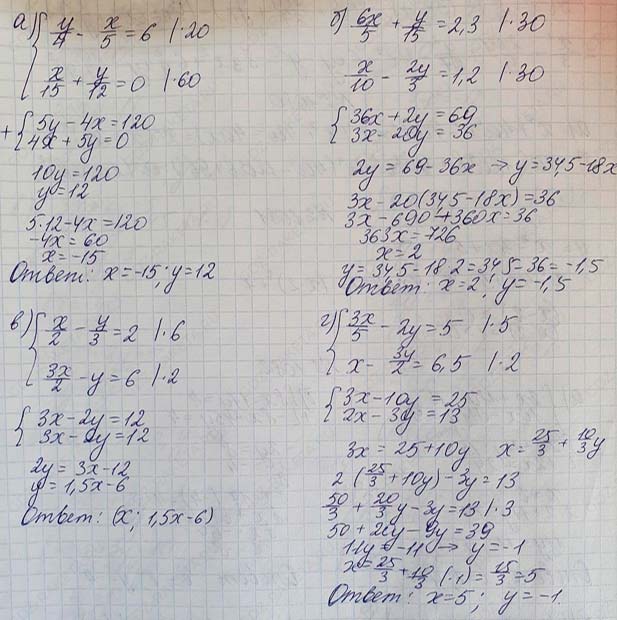 а) { y/4 - x/5 = 6 |·20
x/15 + y/12 = 0 |·60
+ { 5y - 4x = 120
4x + 5y = 0
10y = 120
y = 12
5·12 - 4x = 120
-4x = 60
x = -15
Ответ: x = -15; y = 12
б) 6x/5 + y/15 = 2,3 |·30
x/10 - 2y/3 = 1,2 |·30
{ 36x + 2y = 69
3x - 20y = 36
2y = 69 - 36x → y = 34,5 - 18x
3x - 20(34,5 - 18x) = 36
3x - 690 + 360x = 36
363x = 726
x = 2
y = 34,5 - 18·2 = 34,5 - 36 = -1,5
Ответ: x = 2; y = -1,5
в) { x/2 - y/3 = 2 |·6
3x/2 - y = 6 |·2
{ 3x - 2y = 12
3x - 2y = 12
2y = 3x - 12
y = 1,5x - 6
Ответ: (x; 1,5x - 6)
г) { 3x/5 - 2y = 5 |·5
x - 3y/2 = 6,5 |·2
{ 3x - 10y = 25
2x - 3y = 13
3x = 25 + 10y x = 25/3 + 10/3 y
2(25/3 + 10y) - 3y = 13
50/3 + 20/3 y - 3y = 13 |·3
50 + 20y - 9y = 39
11y = -11 → y = -1
x = 25/3 + 10/3 (-1) = 15/3 = 5
Ответ: x = 5; y = -1.